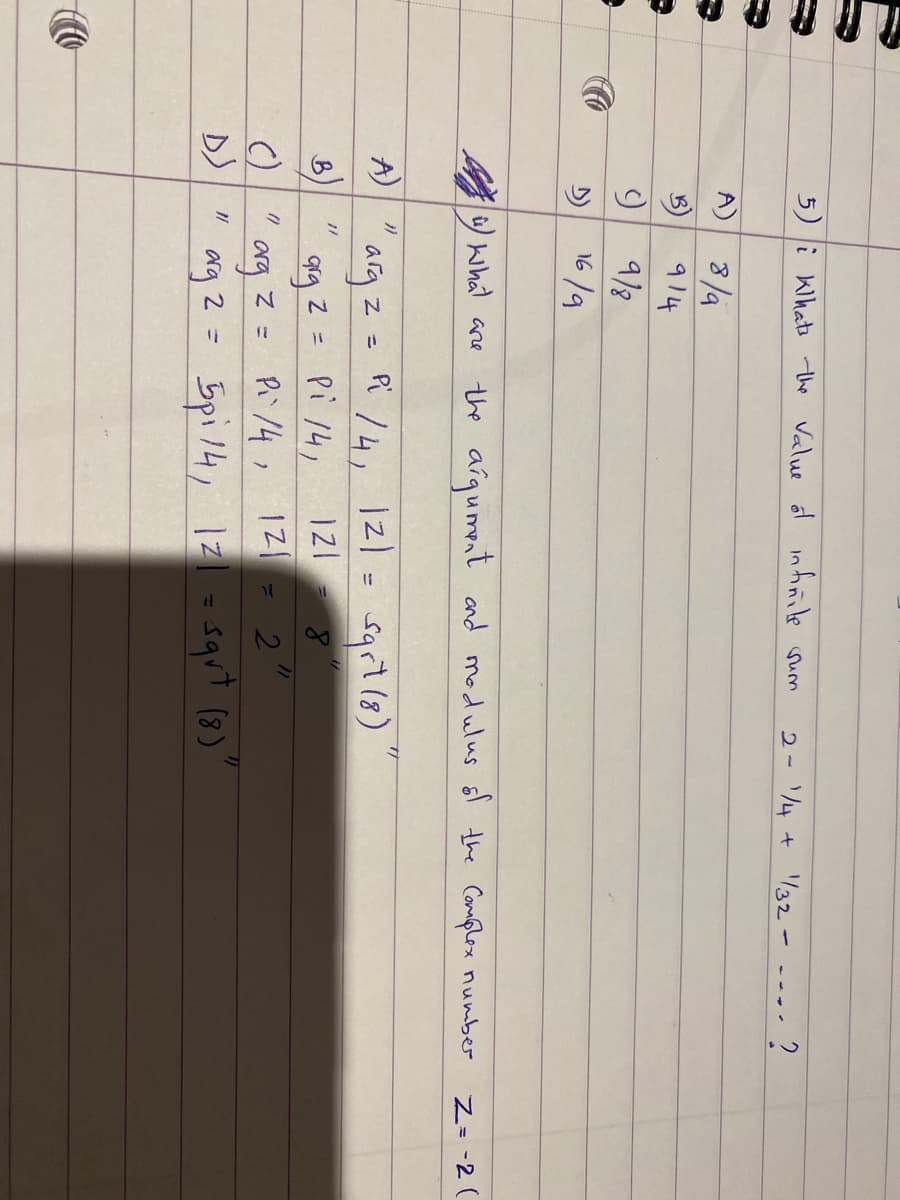 5) i Whats the value of infinite sum 2 - 1/4 + 1/32 - ....?
A) 8/9
B) 9/4
C) 9/8
D) 16/9
ii) What are the argument and modulus of the Complex number Z = -2(
A) " arg z = Pi /4, |z| = sqrt(8) "
B) " arg z = Pi /4, |z| = 8 "
C) " arg z = Pi /4, |z| = 2 "
D) " arg z = 5pi /4, |z| = sqrt (8) "